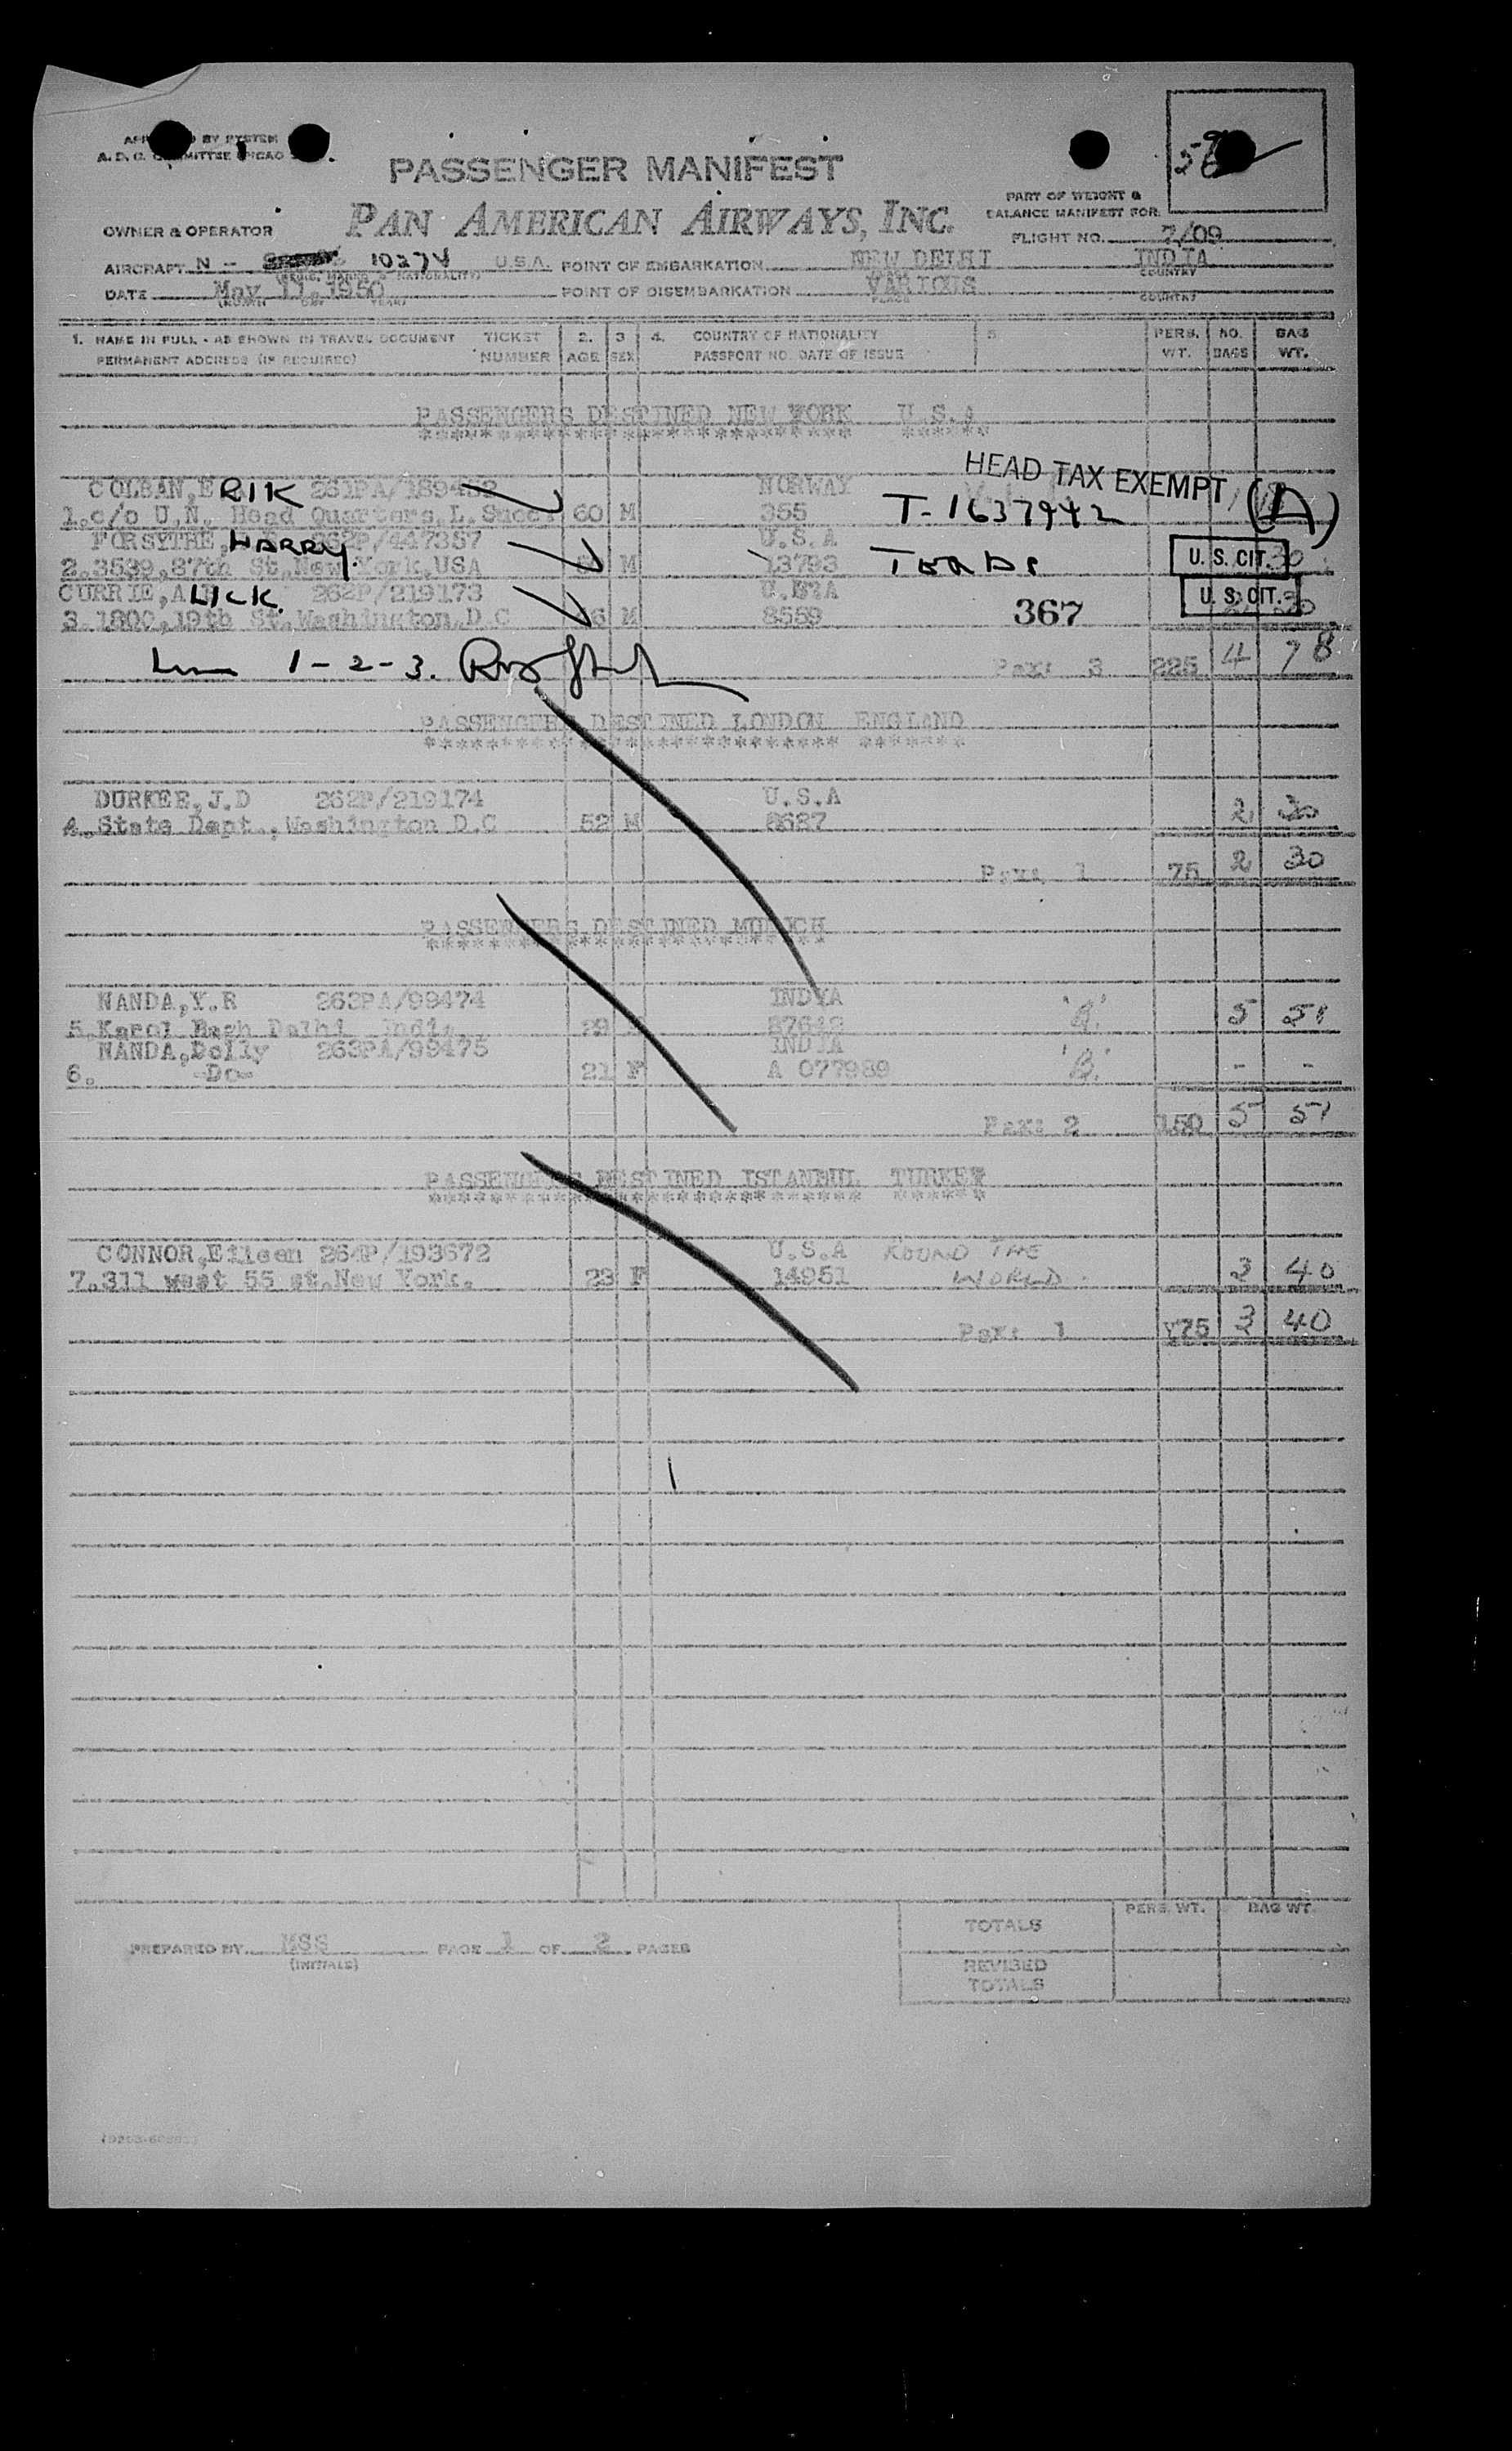 BY SYSTEM
A. D. C. COMMITTEE
PASSENGER MANIFEST
PAN AMERICAN AIRWAYS, INC.
PART OF WEIGHT &
BALANCE MANIFEST FOR:
OWNER & OPERATOR
FLIGHT NO. 2/09
AIRCRAFT N - 1027V U.S.A. POINT OF EMBARKATION NEW DELHI INDIA
COUNTRY
DATE May 11, 1950 POINT OF DISEMBARKATION VARIOUS
PLACE COUNTRY
1. NAME IN FULL - AS SHOWN IN TRAVEL DOCUMENT TICKET 2. 3 4. COUNTRY OF NATIONALITY 5 PERS. NO. BAG
PERMANENT ADDRESS (IF REQUIRED) NUMBER AGE SEX PASSPORT NO. DATE OF ISSUE WT. BAGS WT.
PASSENGERS DESTINED NEW YORK U.S.A
**************************** ******
HEAD TAX EXEMPT
COLBAN, ERIK 261PA/189452 NORWAY
1. c/o U.N. Head Quarters, L. Succ. 60 M 355 T-1637942 (A)
FORSYTHE, HARRY 262P/447357 U.S.A
2. 3539, 87th St, New York, USA M 13793 U. S. CIT. 30
CURRIE, A LICK. 262P/219173 U.S.A
3. 1800, 19th St. Washington, D.C 6 M 8559 367 U. S. CIT.
1-2-3. Pax: 3 225 4 78
PASSENGERS DESTINED LONDON ENGLAND
************************* *******
DURKEE, J.D 262P/219174 U.S.A
4. State Dept., Washington D.C 52 M 8627 2 30
Pax: 1 75 2 30
PASSENGERS DESTINED MUNICH
************************
NANDA, Y.R 263PA/99474 INDIA 'A'
5. Karol Bagh Delhi India 29 5 51
NANDA, Dolly 263PA/99475 INDIA
6. -Do- 21 F A 077989 'B' - -
Pax: 2 150 5 51
PASSENGERS DESTINED ISTANBUL TURKEY
************************** ******
CONNOR, Eileen 264P/193672 U.S.A ROUND THE
7. 311 west 55 st. New York. 23 F 14951 WORLD. 3 40
Pax: 1 75 3 40
TOTALS PERS. WT. BAG WT.
PREPARED BY MSS PAGE 1 OF 2 PAGES
(INITIALS)
REVISED
TOTALS